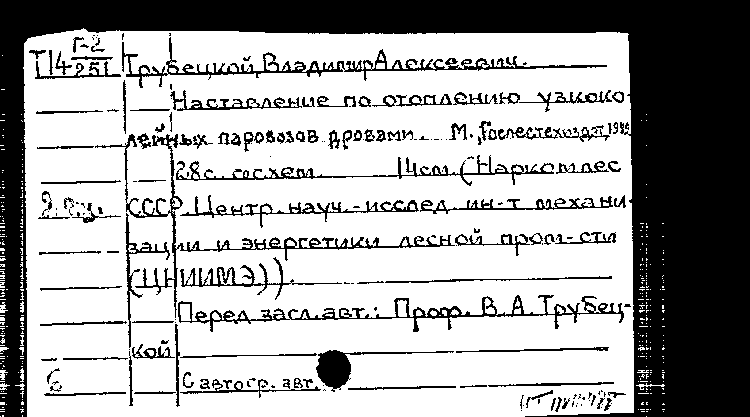 Т14 Г-2/251 Трубецкой, Владимир Алексеевич.
Наставление по отоплению узкоко-
лейных паровозов дровами. М., Гослестехиздат,
28 с. со схем. 14 см. (Наркомлес
СССР. Центр. науч.-исслед. ин-т механи-
зации и энергетики лесной пром-сти
(ЦНИИМЭ)).
Перед загл. авт.: Проф. В. А. Трубец-
кой
6 С автогр. авт.